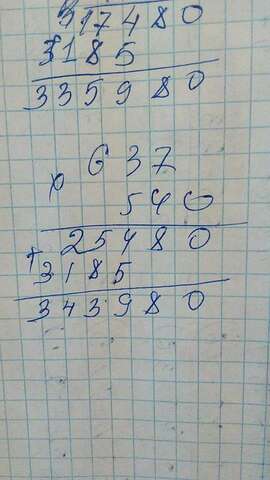 17480
3185
335980
x 637
540
+ 25480
3185
343980